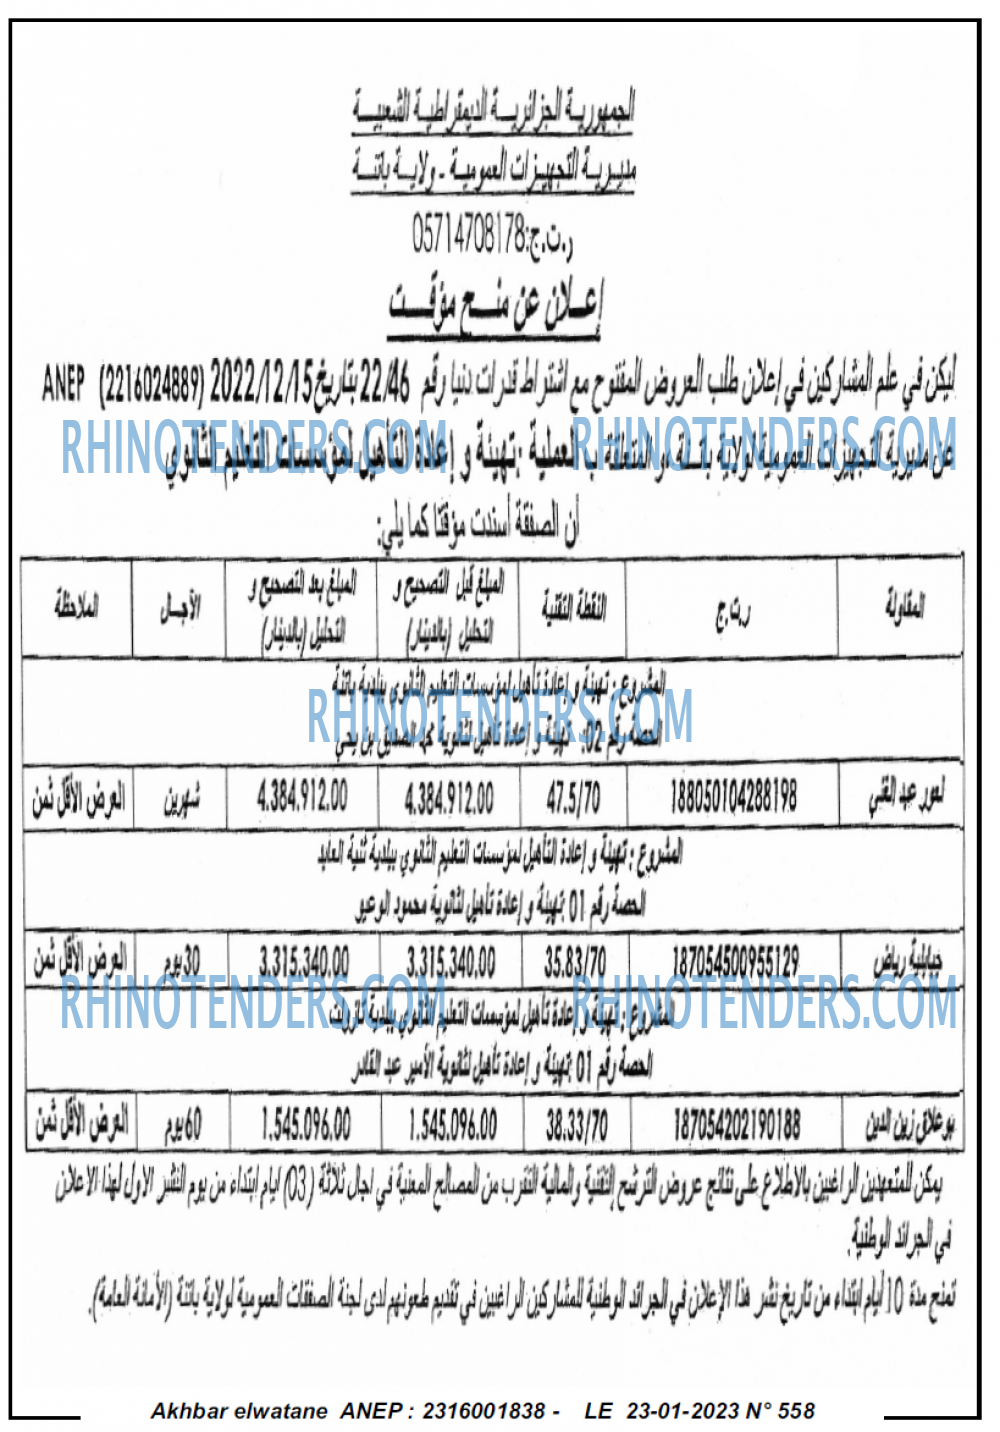 الجمهورية الجزائرية الديمقراطية الشعبية
مديرية التجهيزات العمومية - ولاية باتنة
ر.ت.ج:05714708178
إعلان عن منح مؤقت
ليكن في علم المشاركين في إعلان طلب العروض المفتوح مع اشتراط قدرات دنيا رقم 22/46 بتاريخ 2022/12/15 (2216024889) ANEP
عن مديرية التجهيزات العمومية لولاية باتنة و المتعلقة ب العملية :تهيئة و إعادة التأهيل لمؤسسات التعليم الثانوي
RHINOTENDERS.COM RHINOTENDERS.COM
أن الصفقة أسندت مؤقتا كما يلي:
المقاولة ر.ت.ج النقطة التقنية المبلغ قبل التصحيح و التحليل (بالدينار) المبلغ بعد التصحيح و التحليل (بالدينار) الآجال الملاحظة
المشروع : تهيئة و إعادة تأهيل لمؤسسات التعليم الثانوي ببلدية باتنة
RHINOTENDERS.COM
الحصة رقم 02: تهيئة و إعادة تأهيل لثانوية محمد الصديق بن يحي
لعور عبد الغني 188050104288198 47.5/70 4.384.912.00 4.384.912.00 شهرين العرض الأقل ثمن
المشروع : تهيئة و إعادة التأهيل لمؤسسات التعليم الثانوي ببلدية ثنية العابد
الحصة رقم 01 :تهيئة و إعادة تأهيل لثانوية محمود الوعيو
رياض 187054500955129 35.83/70 3.315.340.00 3.315.340.00 30يوم العرض الأقل ثمن
RHINOTENDERS.COM RHINOTENDERS.COM
المشروع : تهيئة و إعادة تأهيل لمؤسسات التعليم الثانوي ببلدية
الحصة رقم 01 :تهيئة و إعادة تأهيل لثانوية الأمير عبد القادر
بوعلاق زين الدين 187054202190188 38.33/70 1.545.096.00 1.545.096.00 60يوم العرض الأقل ثمن
يمكن للمتعهدين الراغبين بالاطلاع على نتائج عروض الترشح التقنية والمالية التقرب من المصالح المعنية في اجال ثلاثة (03) ايام ابتداء من يوم النشر الاول لهذا الاعلان
في الجرائد الوطنية.
تمنح مدة 10 أيام ابتداء من تاريخ نشر هذا الإعلان في الجرائد الوطنية للمشاركين الراغبين في تقديم طعونهم لدى لجنة الصفقات العمومية لولاية باتنة (الأمانة العامة).
Akhbar elwatane ANEP : 2316001838 - LE 23-01-2023 N° 558